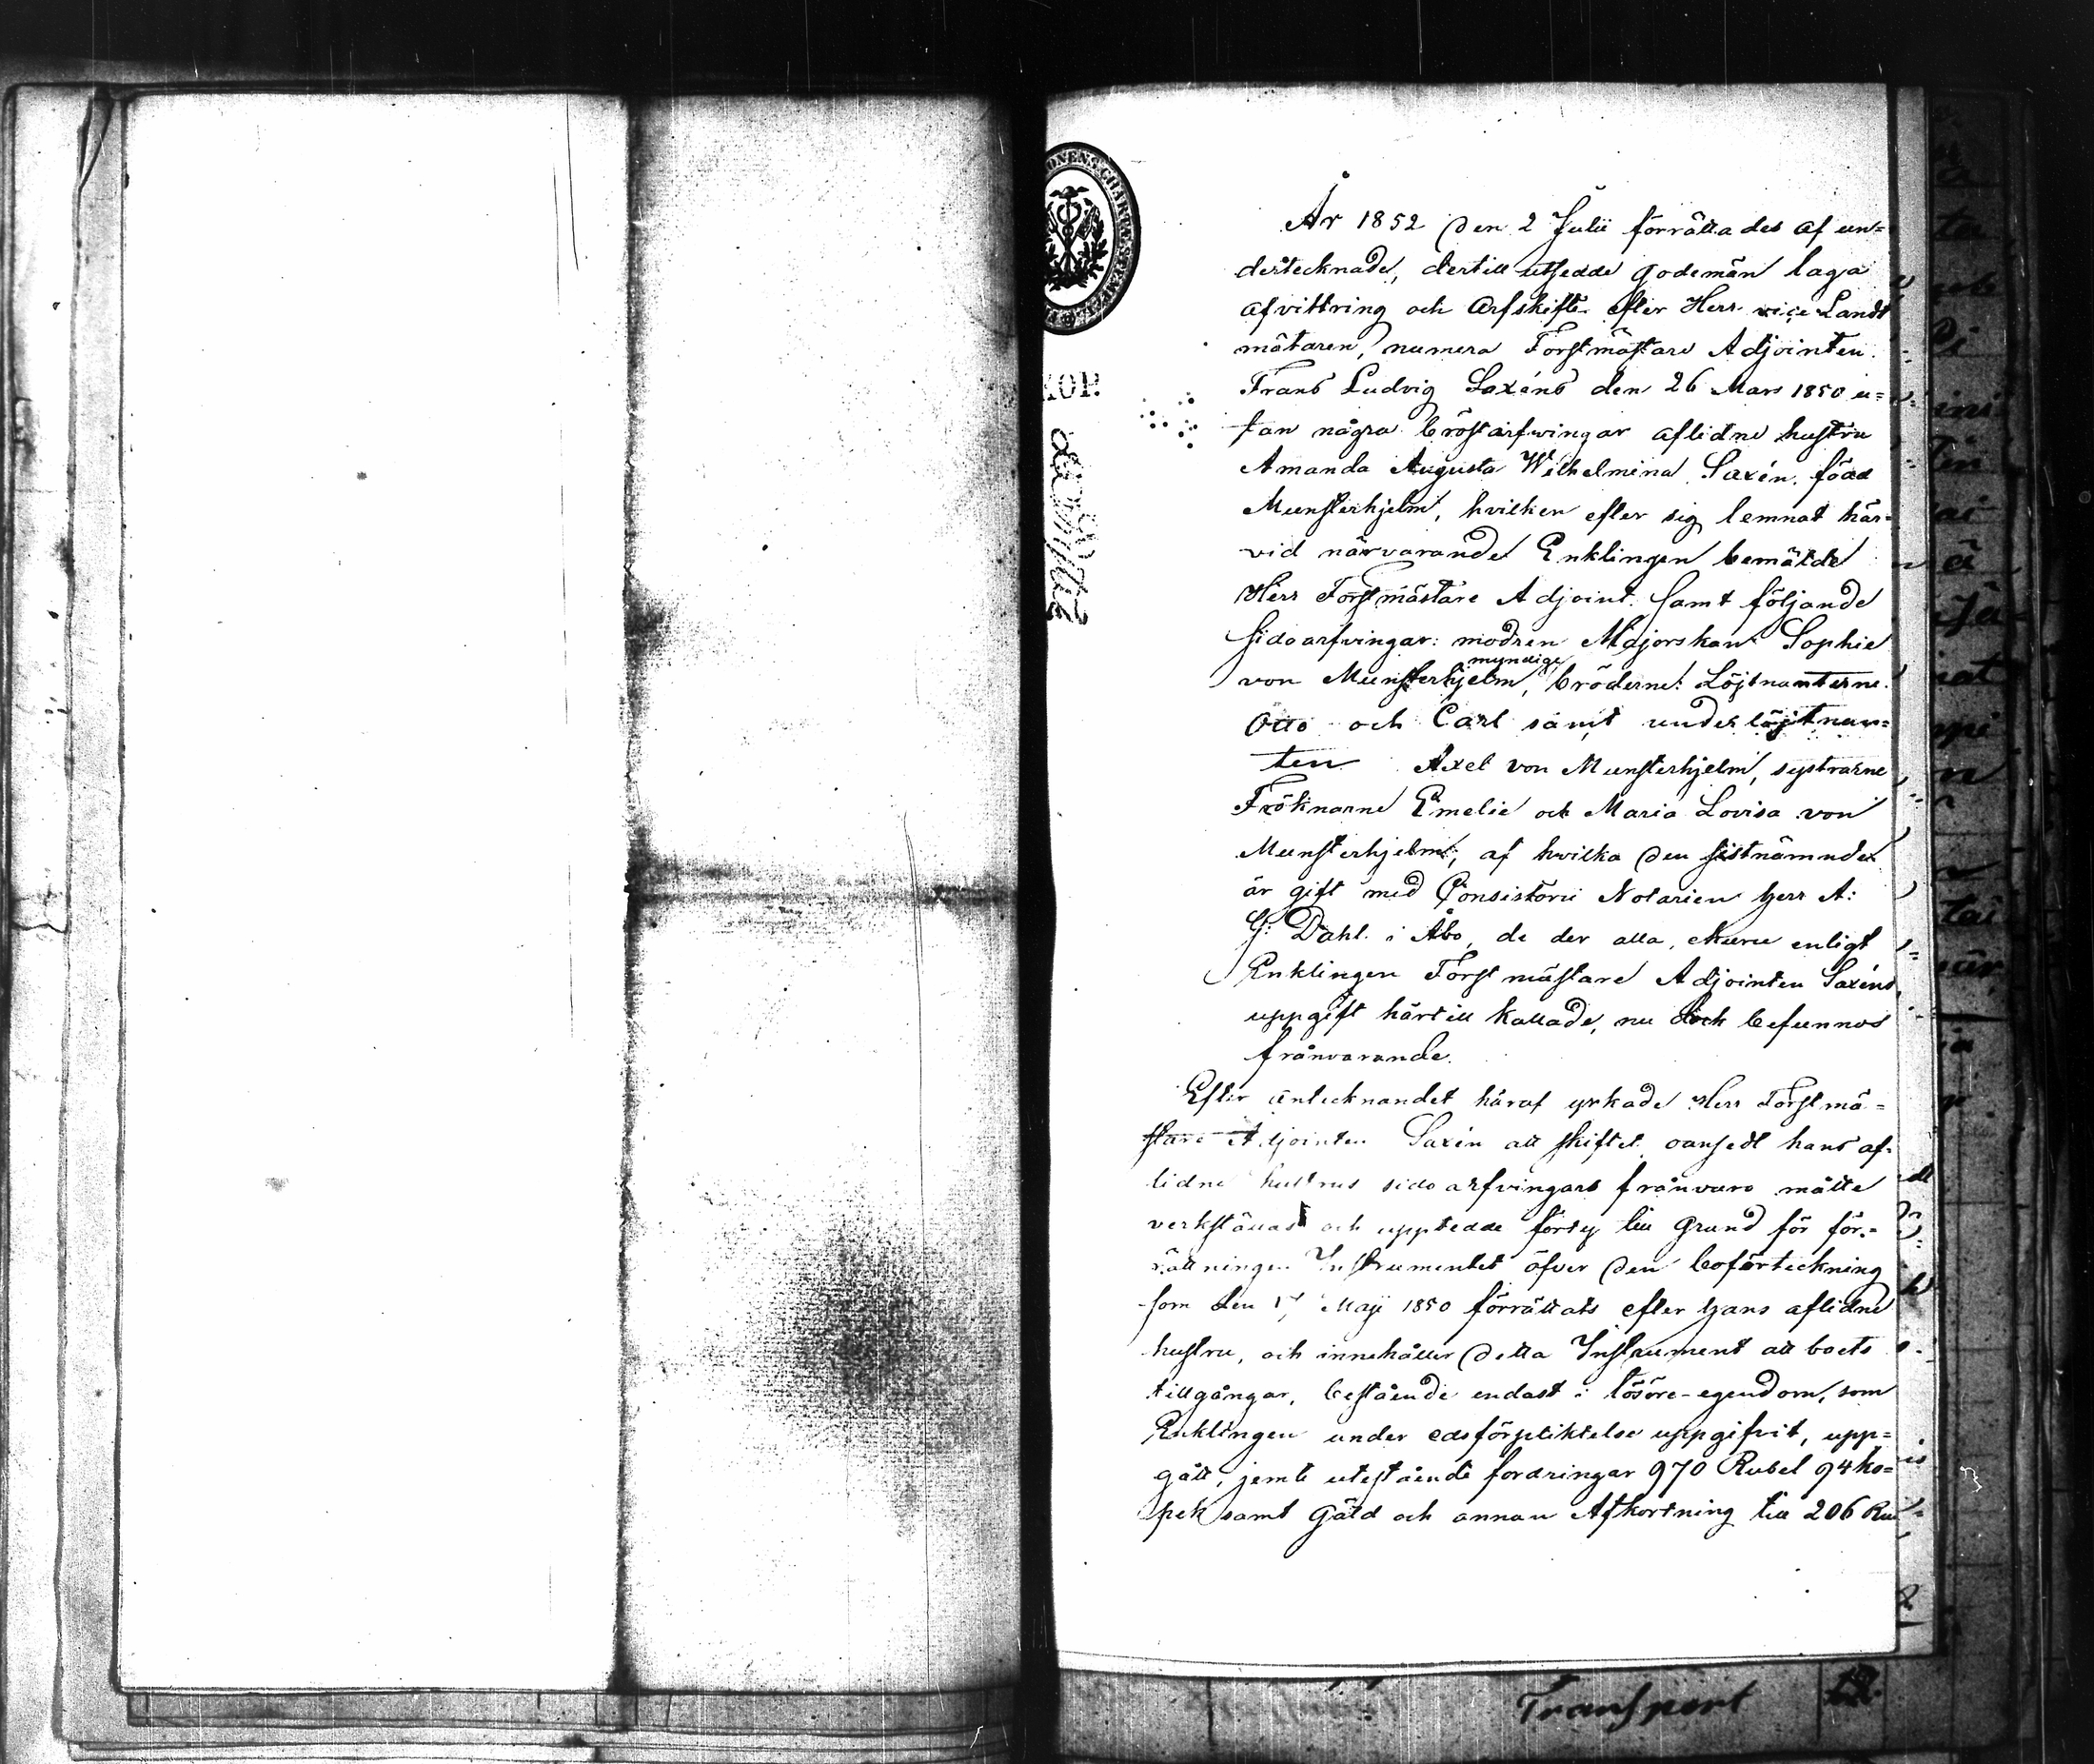 År 1852 den 2 Julii förrättades af un=
dertecknade, dertill utsedde godemän laga
afvittring och arfskifte efter Herr vice Landt
mätaren, numera Forstmästare Adjointen
Frans Ludvig Saxéns den 26 Mars 1850 u=
tan några bröstarfwingar aflidne hustru
Amanda Augusta Wilhelmina Saxén, född
Munsterhjelm, hvilken efter sig lemnat här=
vid närvarande Enklingen bemälde
Herr Forstmästare Adjoint. samt följande
sidoarfvingar: modren Majorskan Sophie
myndige
von Munsterhjelm, bröderne: Löjtnanterne
Otto och Carl samt underlöjtnan=
ten Axel von Munsterhjelm, systrarne
Fröknarne Emelie och Maria Lovisa von
Munsterhjelm, af hvilka den sistnämnde
är gift med Consistorii Notarien herr A:
G: Dahl i Åbo, de der alla, ehuru enligt
Enklingen Forstmästare Adjointen Saxéns
uppgift härtill kallade, nu dock befunnos
frånvarande.
Efter antecknandet häraf yrkade Herr Forstmä=
stare Adjointen Saxén att skiftet oansedt hans af=
lidne hustrus sidoarfvingars frånvaro måtte
verkställas och upptedde förty till grund för för=
rättningen Instrumentet öfver den boförteckning
som den 17 Maji 1850 förrättats efter hans aflidne
hustru, och innehåller detta Instrument att boets
tillgångar, bestående endast i lösöre-egendom, som
Enklingen under edsförpliktelse uppgifvit, upp=
gått, jemte utestående fordringar 970 Rubel 94 ko=
pek samt Gäld och annan Afkortning till 206 Ru
Transport